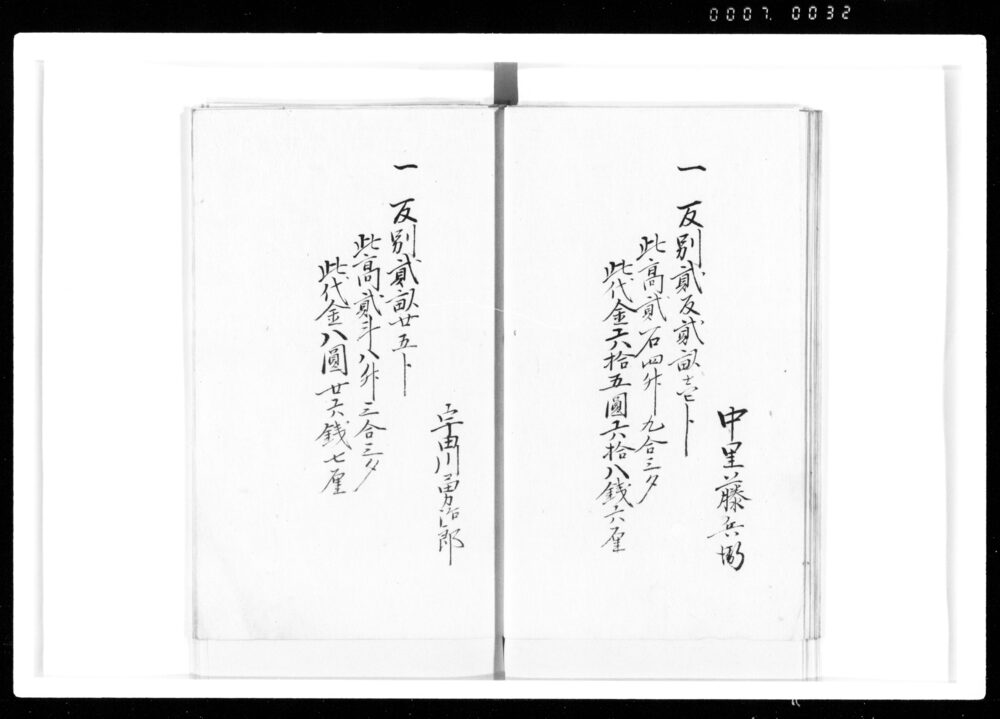 0007. 0032
中里藤兵衛
一 反別貳反貳畝壱卜
此高貳石四升九合三夕
此代金六拾五圓六拾八銭六厘
宇田川勇治郎
一 反別貳畝廿五卜
此高貳斗八升三合三夕
此代金八圓廿六銭七厘